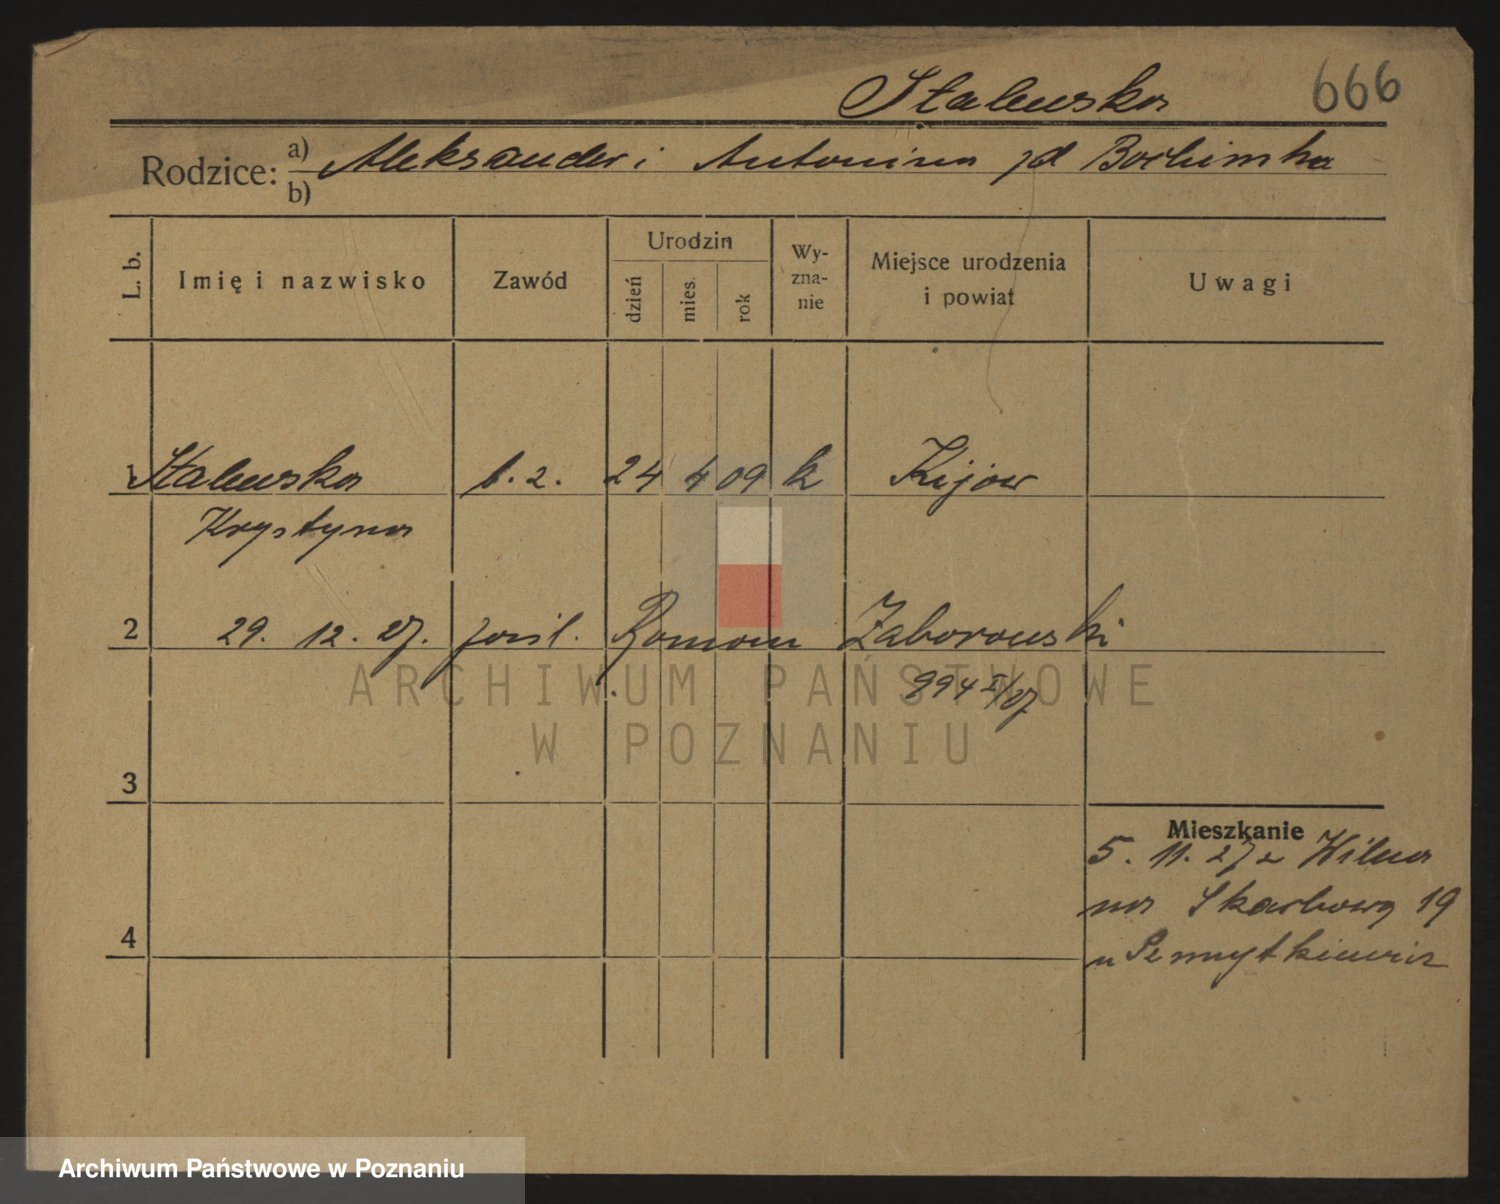 Stalewska 666
Rodzice: a) Aleksander i Antonina zd
b)
L. b. Imię i nazwisko Zawód Urodzin dzień mies. rok Wy-zna-nie Miejsce urodzenia i powiat Uwagi
1 Stalewska b. z. 24 4 09 k Kijow
Krystyna
2 29. 12. 27. Roman Zaborowski
994 I/27
3
Mieszkanie
5. 11. 27 z Wilna
na Skarbowa 19
4 u
ARCHIWUM PAŃSTWOWE
W POZNANIU
Archiwum Państwowe w Poznaniu